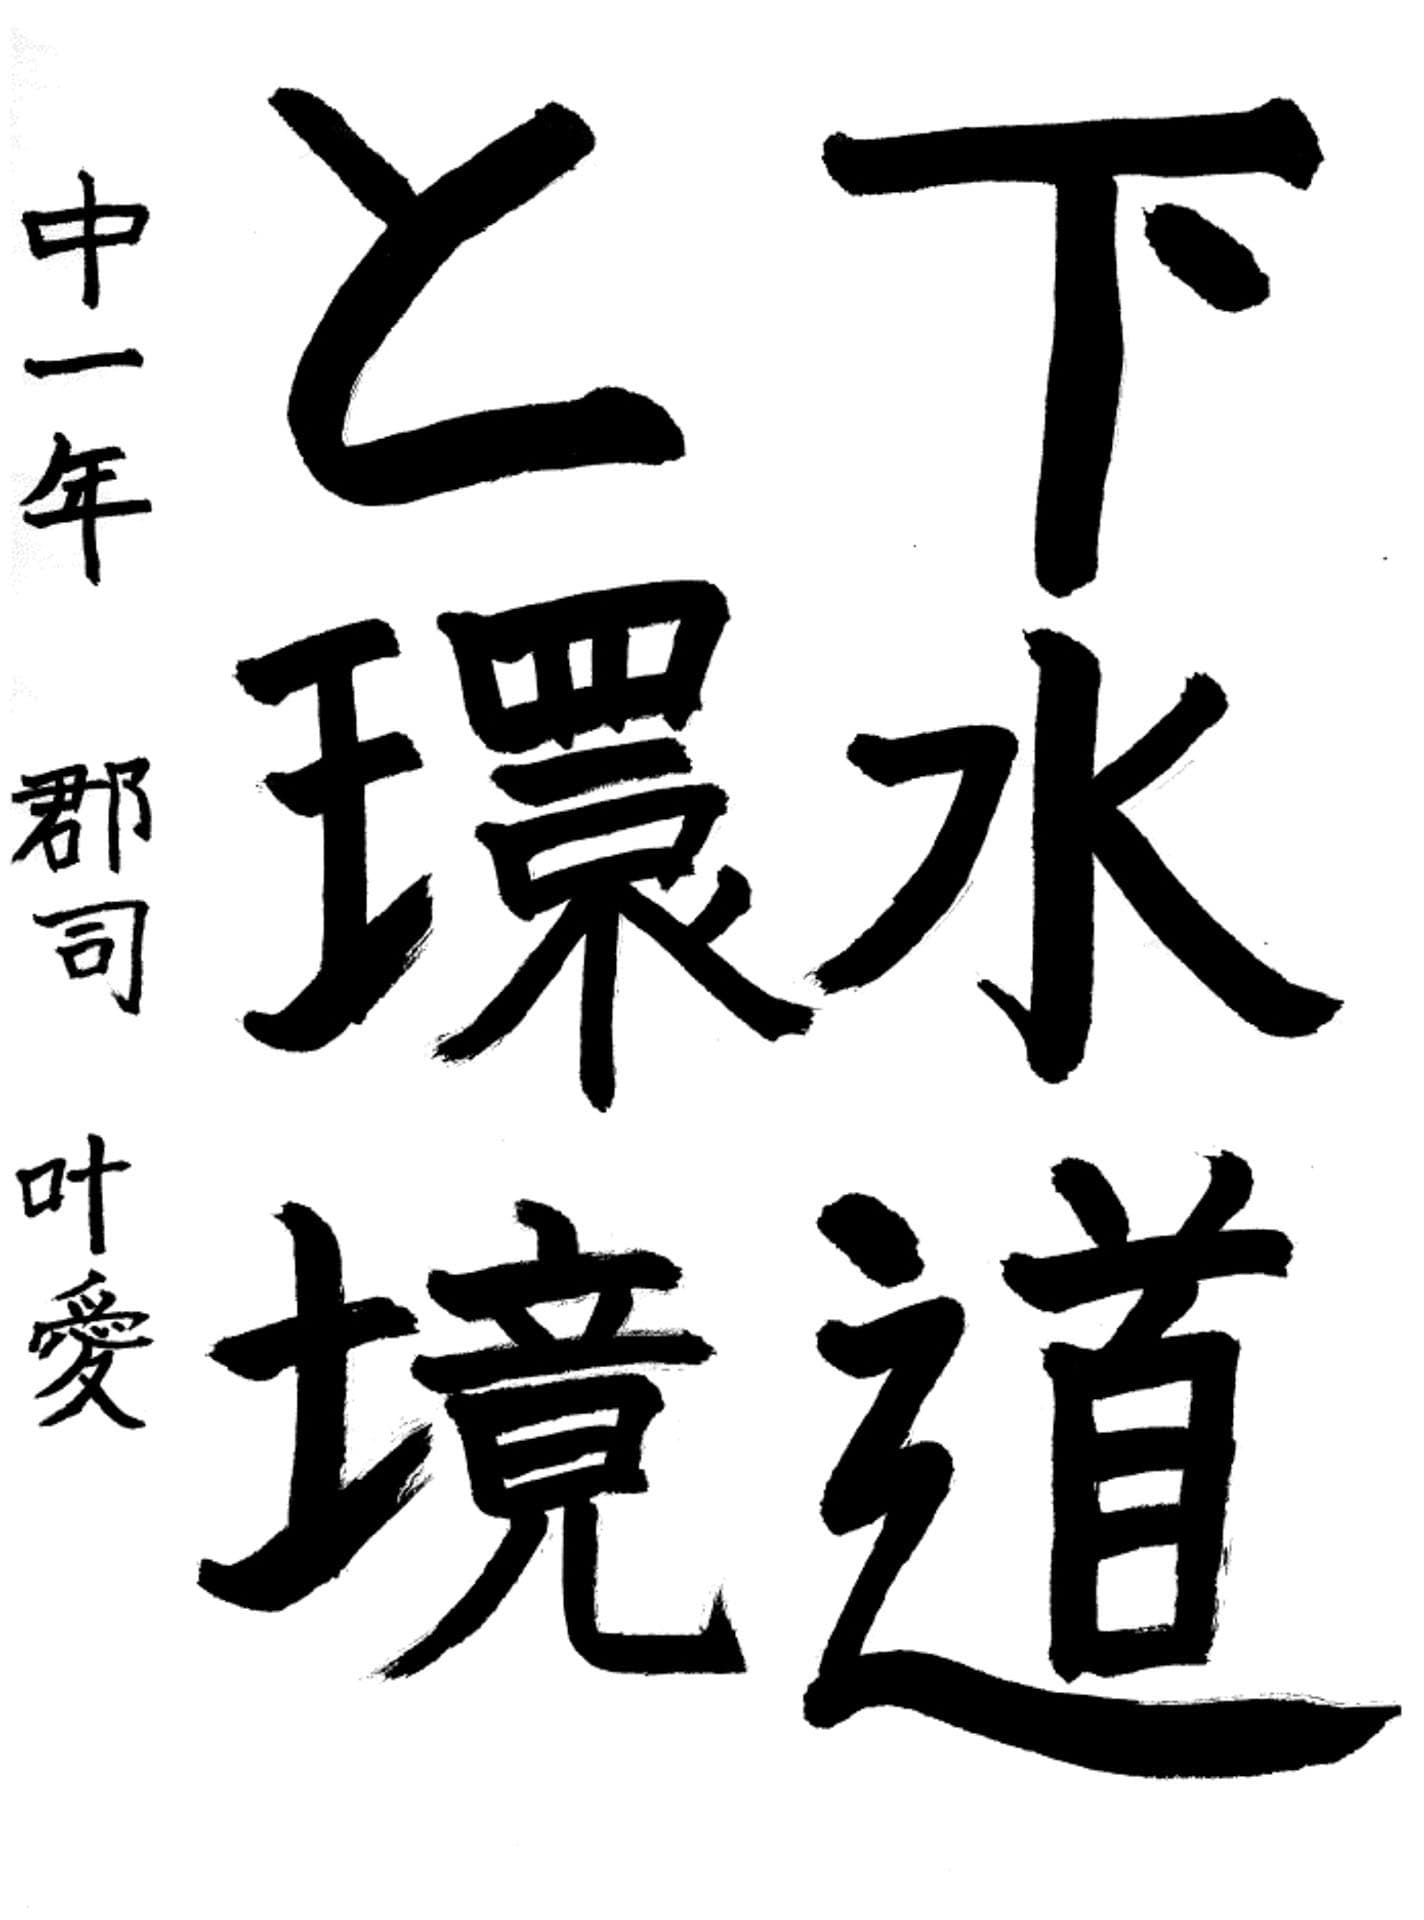 下水道
と環境
中一年 郡司 叶愛